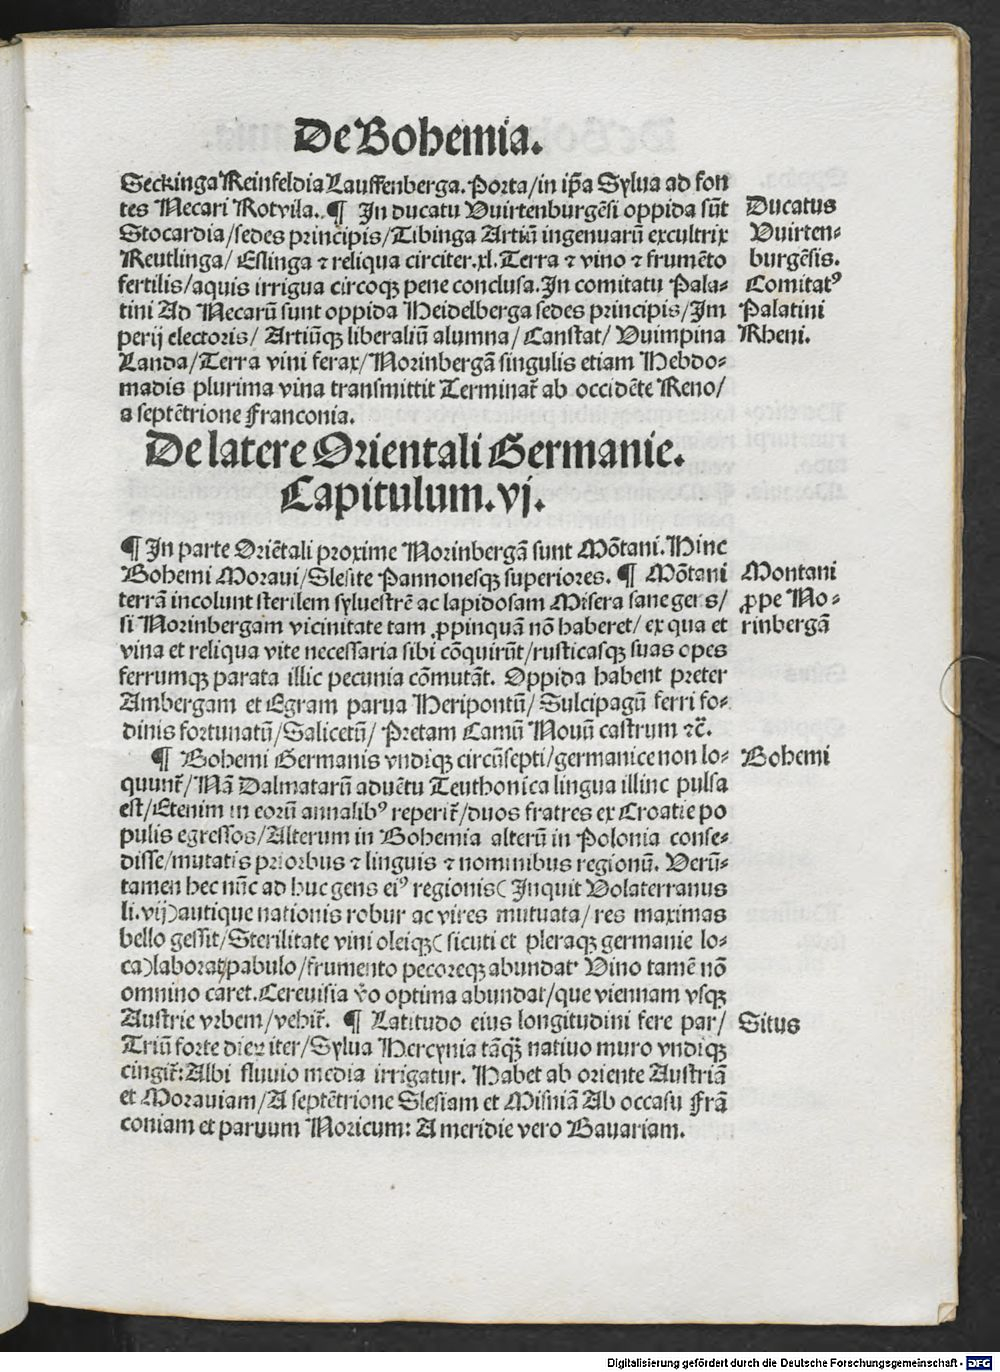 De Bohemia.
Seckinga Reinfeldia Lauffenberga. Porta/in ip̄a Sylua ad fon
tes Necari Rotvila. ¶ In ducatu Vuirtenburgēsi oppida sūt
Ducatus
Stocardia/sedes principis/Tibinga Artiū ingenuarū excultrix
Vuirten-
Reutlinga/ Eslinga ⁊ reliqua circiter.xl.Terra ⁊ vino ⁊ frumēto
burgēsis.
fertilis/aquis irrigua circoqꝫ pene conclusa.In comitatu Pala-
Comitatꝰ
tini Ad Necarū sunt oppida Heidelberga sedes principis/Im
Palatini
perij electoris/ Artiūqꝫ liberaliū alumna/ Canstat/ Vuimpina
Rheni.
Landa/Terra vini ferax/Norinbergā singulis etiam Hebdo-
madis plurima vina transmittit Terminat̄ ab occidēte Reno/
a septētrione Franconia.
De latere Orientali Germanie.
Capitulum.vj.
¶ In parte Oriētali proxime Norinbergā sunt Mōtani.Hinc
Bohemi Moraui/Slesite Pannonesqꝫ superiores. ¶ Mōtani
Montani
terrā incolunt sterilem syluestrē ac lapidosam Misera sane gens/
ꝓpe No-
si Norinbergam vicinitate tam ꝓpinquā nō haberet/ ex qua et
rinbergā
vina et reliqua vite necessaria sibi cōquirūt/rusticasqꝫ suas opes
ferrumqꝫ parata illic pecunia cōmutāt. Oppida habent preter
Ambergam et Egram parua Heripontū/ Sulcipagū ferri fo-
dinis fortunatū/Salicetū/ Pretam Camū Nouū castrum ⁊c̄.
¶ Bohemi Germanis vndiqꝫ circūsepti/germanice non lo-
Bohemi
quunt̄/Nā Dalmatarū aduētu Teuthonica lingua illinc pulsa
est/Etenim in eorū annalibꝰ reperit̄/duos fratres ex Croatie po
pulis egressos/Alterum in Bohemia alterū in Polonia conse-
disse/mutatis prioribus ⁊ linguis ⁊ nominibus regionū. Verū-
tamen hec nūc ad huc gens eiꝰ regionis( Inquit Volaterranus
li.vij)autique nationis robur ac vires mutuata/res maximas
bello gessit/Sterilitate vini oleiqꝫ( sicuti et pleraqꝫ germanie lo-
ca)laborat/pabulo/frumento pecoreqꝫ abundat Vino tamē nō
omnino caret.Cereuisia v̊o optima abundat/que viennam vsqꝫ
Austrie vrbem/vehit̄. ¶ Latitudo eius longitudini fere par/
Situs
Triū forte dieꝝ iter/Sylua Hercynia tāqꝫ natiuo muro vndiqꝫ
cingit̄:Albi fluuio media irrigatur. Habet ab oriente Austriā
et Morauiam/A septētrione Slesiam et Misniā Ab occasu Frā
coniam et paruum Noricum: A meridie vero Bauariam.
Digitalisierung gefördert durch die Deutsche Forschungsgemeinschaft - DFG